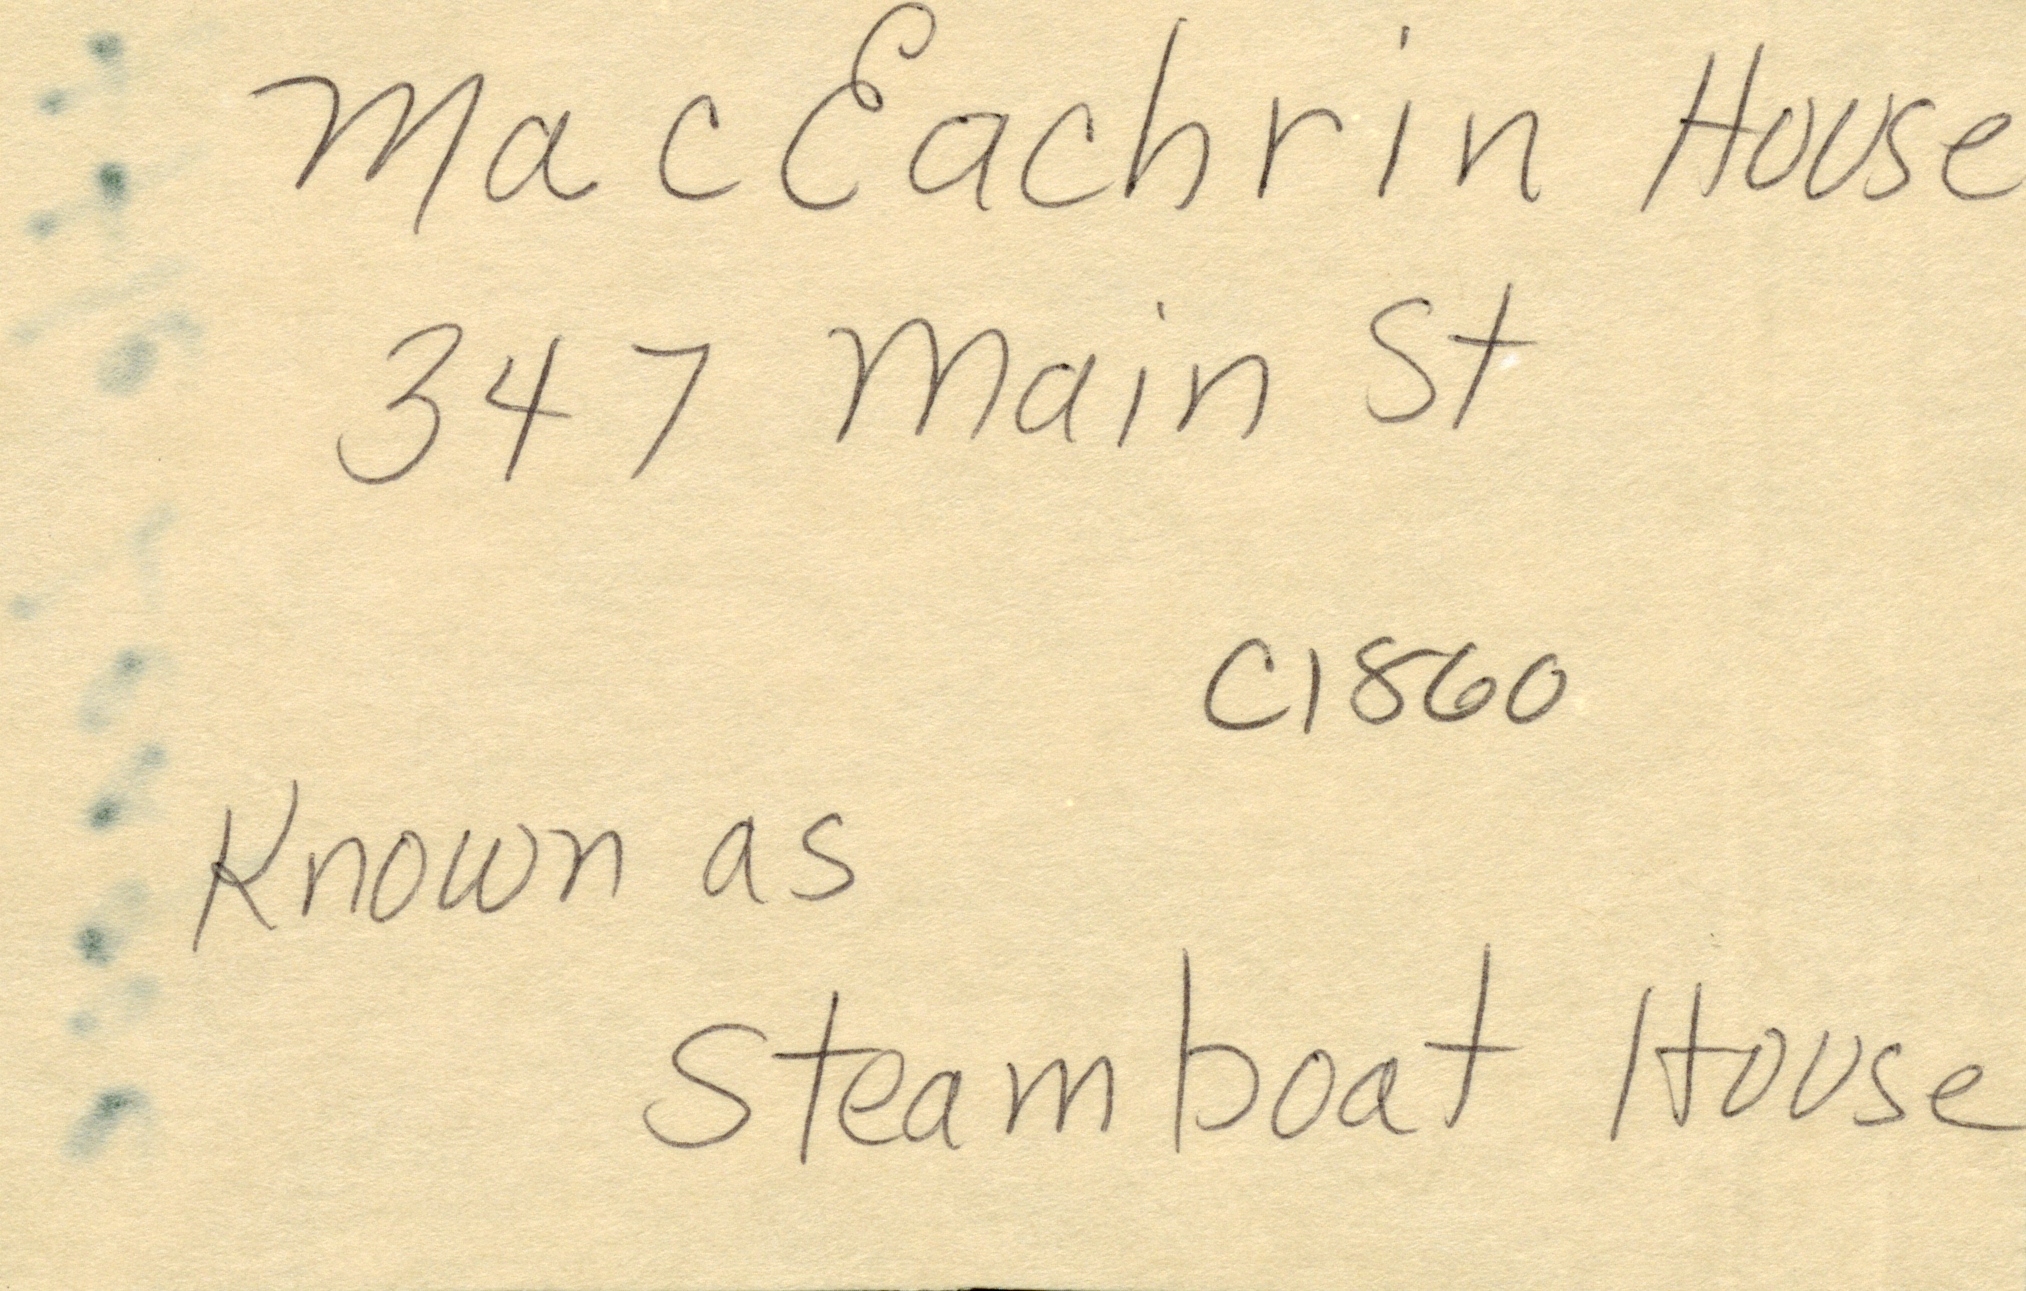 MacEachrin House
347 Main St
C1860
Known as
Steamboat House